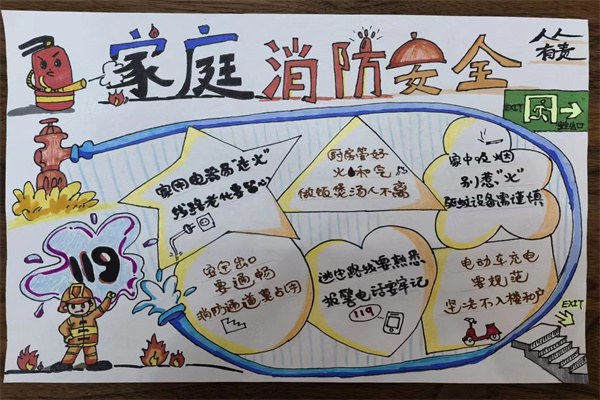 家庭消防安全
人人
有责
EXIT
安全出口
家用电器易"走火"
线路老化要留心
厨房管好
火和气
做饭煲汤人不离
家中吸烟
别惹"火"
驱蚊设备需谨慎
119
安全出口
要通畅
消防通道莫占用
逃生路线要熟悉
报警电话要牢记
119
电动车充电
要规范
坚决不入楼和户
EXIT